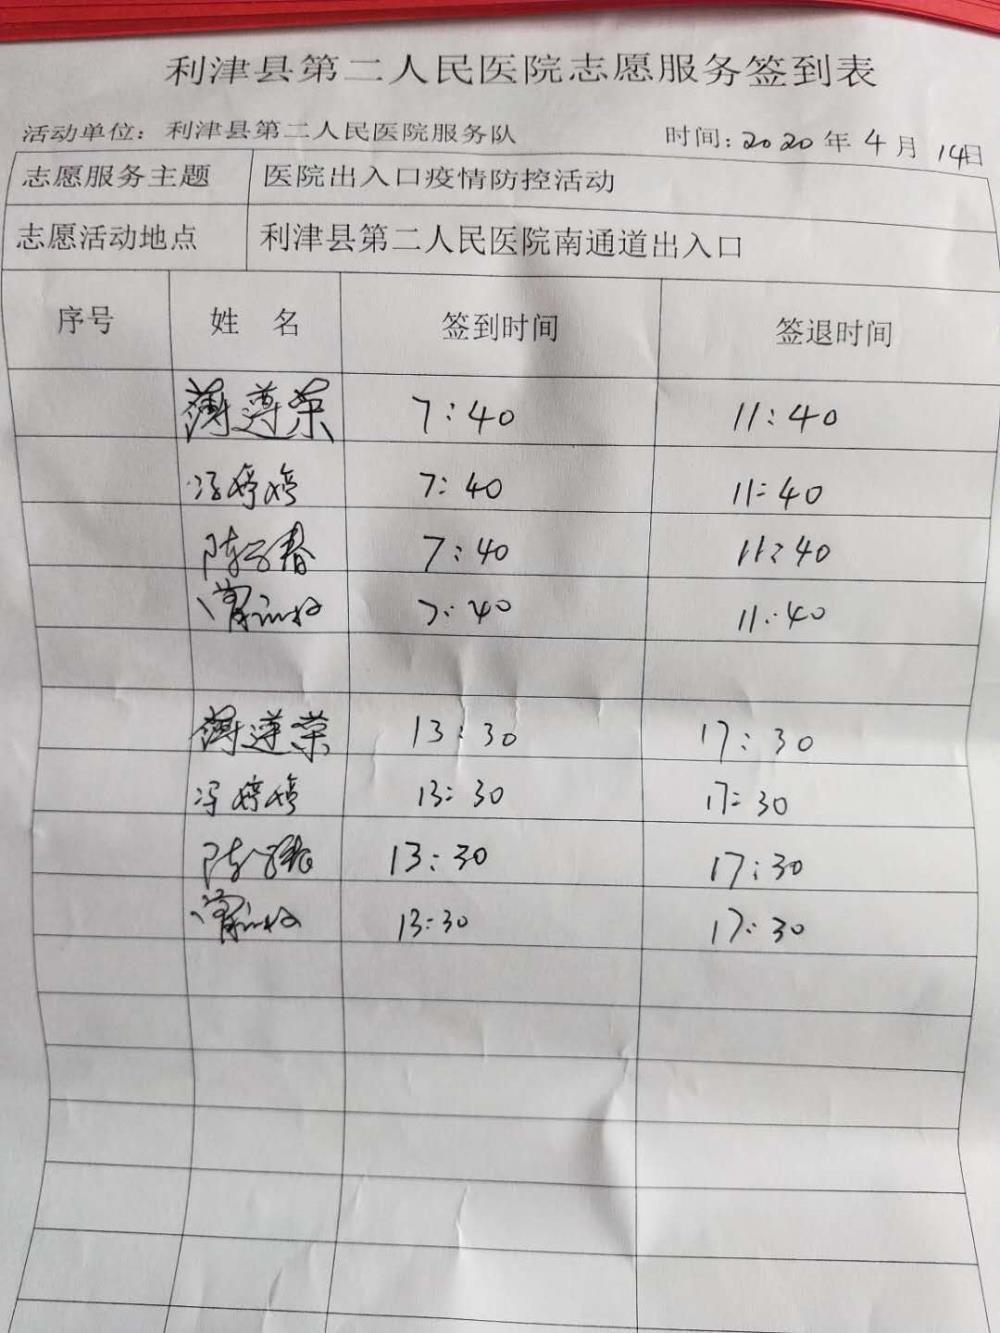 利津县第二人民医院志愿服务签到表
活动单位：利津县第二人民医院服务队 时间：2020年4月14日
志愿服务主题 医院出入口疫情防控活动
志愿活动地点 利津县第二人民医院南通道出入口
序号 姓 名 签到时间 签退时间
薄莲荣 7:40 11:40
冯婷婷 7:40 11:40
陈春 7:40 11:40
7:40 11:40
薄莲荣 13:30 17:30
冯婷婷 13:30 17:30
陈 13:30 17:30
13:30 17:30